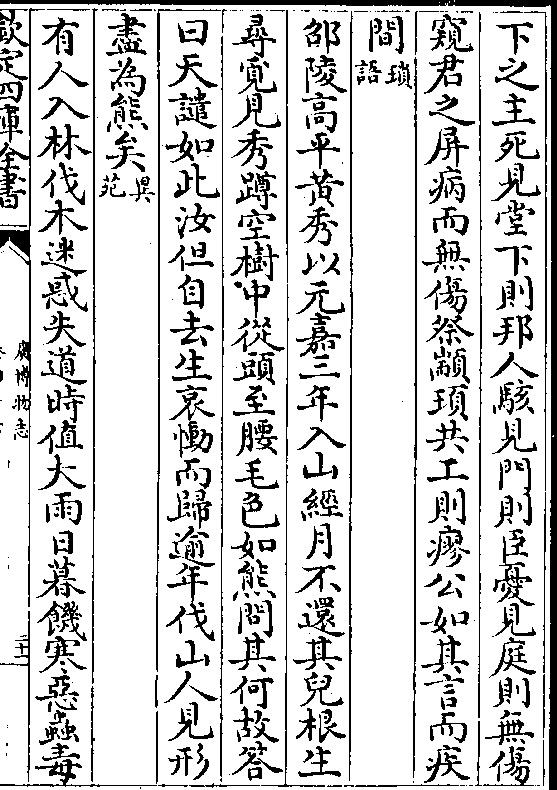 下之主死見堂下則邦人駭見門則臣憂見庭則無傷
窺君之屏病而無傷祭顓頊共工則瘳公如其言而疾
間瑣語
邵陵高平黄秀以元嘉三年入山經月不還其兒根生
尋覓見秀蹲空樹中從頭至腰毛色如熊問其何故答
曰天譴如此汝但自去生哀慟而歸逾年伐山人見形
盡為熊矣異苑
有人入林伐木迷惑失道時值大雨日暮饑寒惡蟲毒
欽定四庫全書
廣博物志